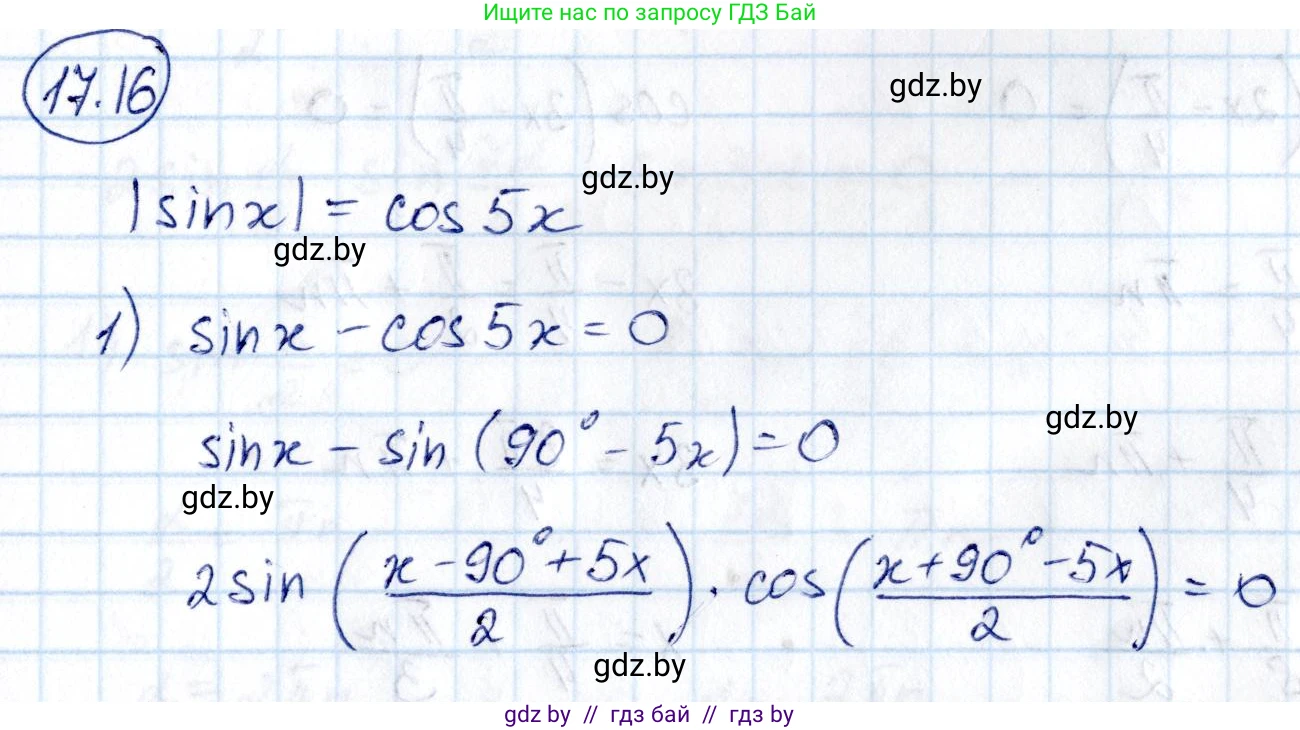 Ищите нас по запросу ГДЗ Бай
17.16
gdz.by
|sinx| = cos 5x
gdz.by
gdz.by
1) sinx - cos 5x = 0
sinx - sin (90° - 5x) = 0
gdz.by
gdz.by
2 sin ( (x - 90° + 5x) / 2 ) · cos ( (x + 90° - 5x) / 2 ) = 0
gdz.by
gdz.by // гдз бай // гдз by